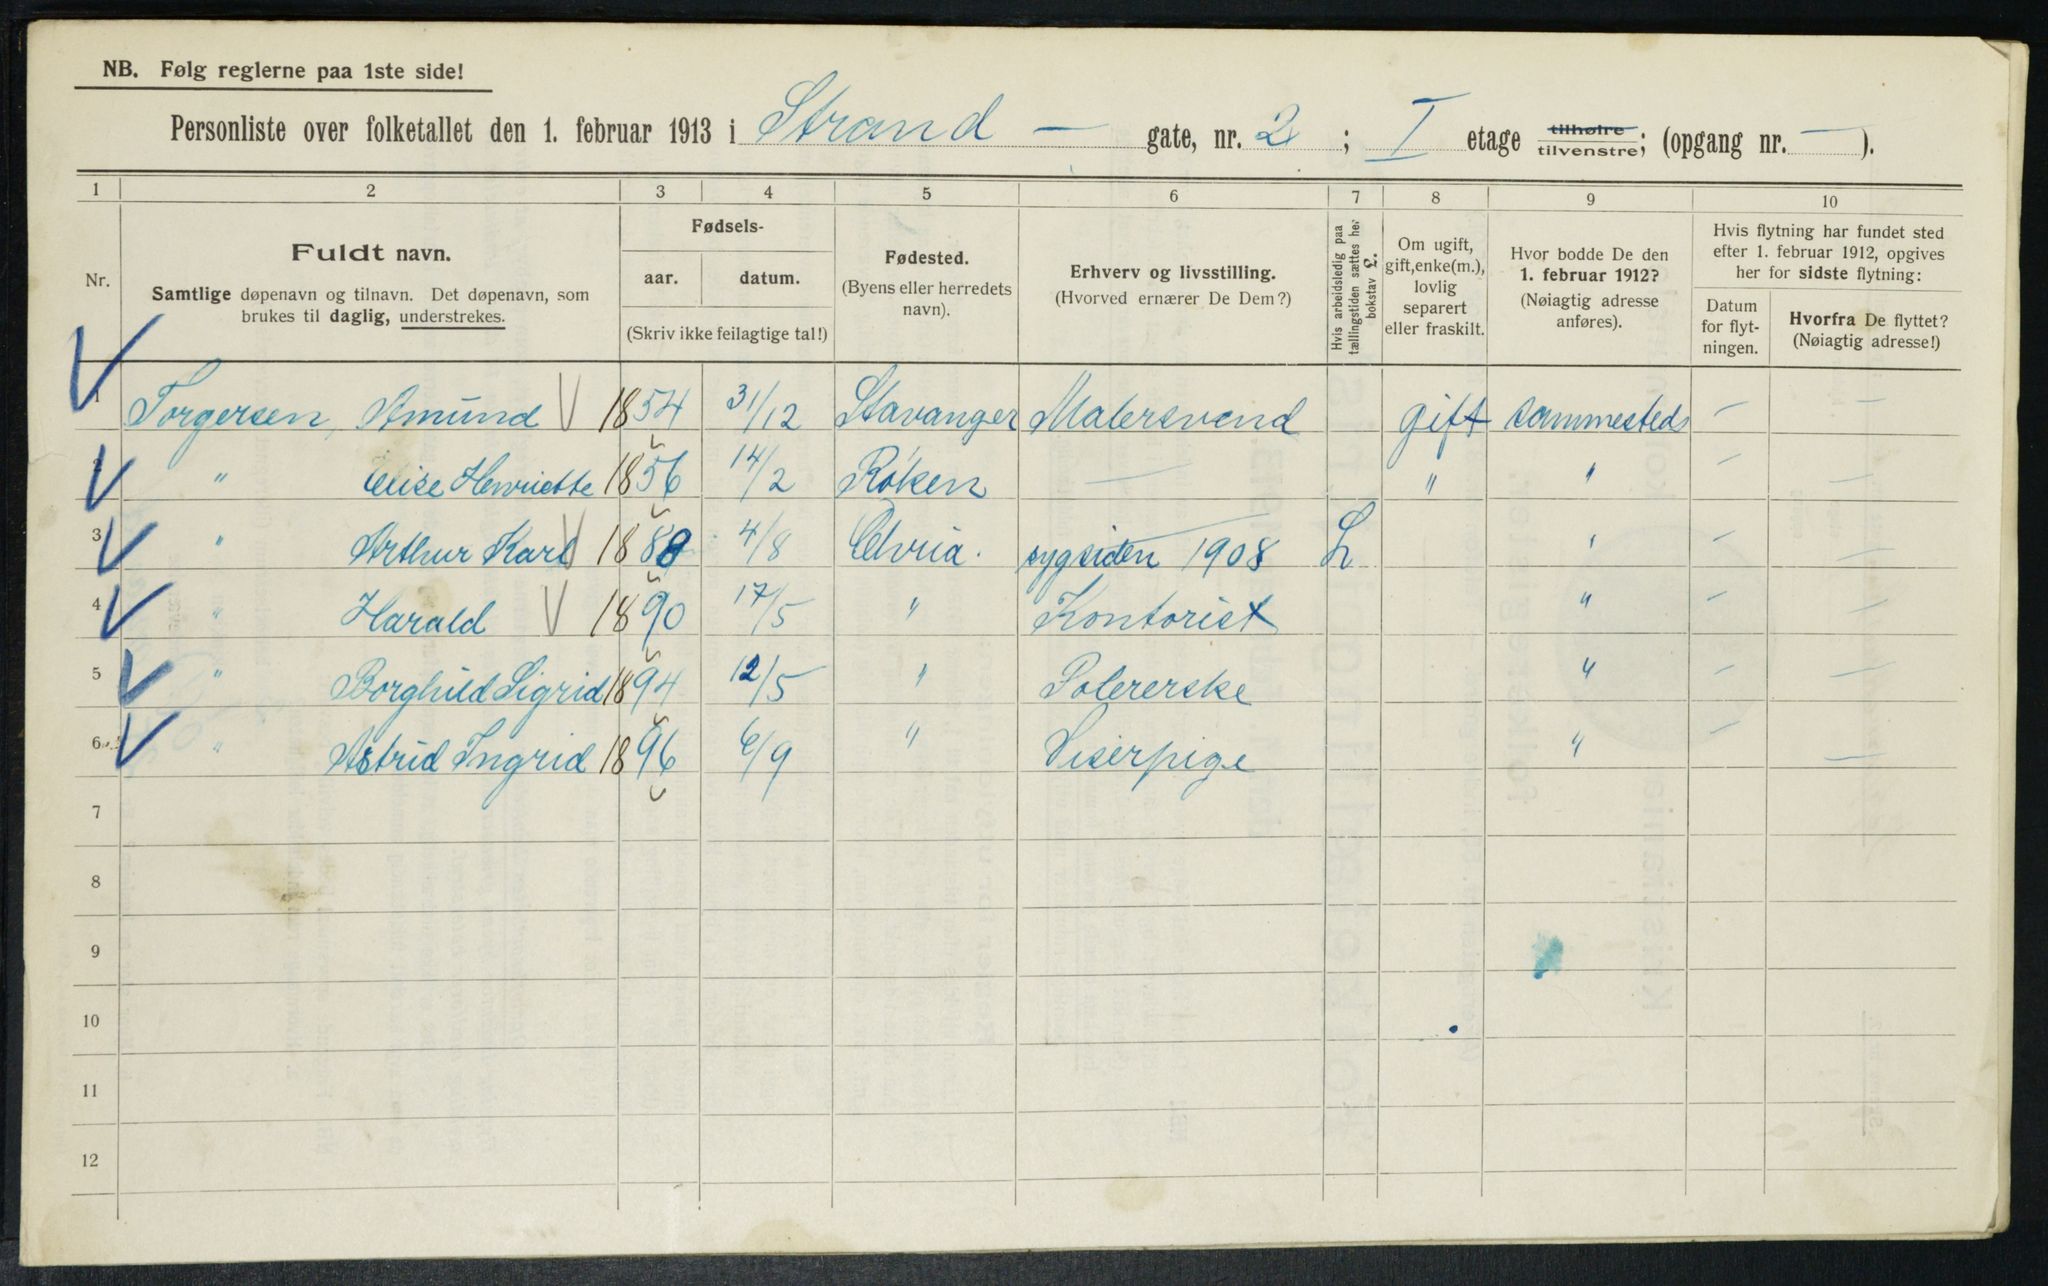 NB. Følg reglerne paa 1ste side!
Personliste over folketallet den 1. februar 1913 i Strand — gate, nr. 2 ; I etage tilhøire tilvenstre; (opgang nr. — ).
1 2 3 4 5 6 7 8 9 10
Nr.
Fuldt navn.
Samtlige døpenavn og tilnavn. Det døpenavn, som
brukes til daglig, understrekes.
Fødsels-
aar. datum.
(Skriv ikke feilagtige tal!)
Fødested.
(Byens eller herredets
navn).
Erhverv og livsstilling.
(Hvorved ernærer De Dem?)
Hvis arbeidsledig paa
tællingstiden sættes her
bokstav L.
Om ugift,
gift, enke(m.),
lovlig
separert
eller fraskilt.
Hvor bodde De den
1. februar 1912?
(Nøiagtig adresse
anføres).
Hvis flytning har fundet sted
efter 1. februar 1912, opgives
her for sidste flytning:
Datum
for flyt-
ningen.
Hvorfra De flyttet?
(Nøiagtig adresse!)
1 Torgersen, Amund 1854 31/12 Stavanger Malersvend gift sammesteds — —
2 " Elise Henriette 1856 14/2 Røken — " " — —
3 " Arthur Karl 1888 4/8 Chria. sygsiden 1908 L " — —
4 " Harald 1890 17/5 " Kontorist " — —
5 " Borghild Sigrid 1894 12/5 " Polererske " — —
6 " Astrid Ingrid 1896 6/9 " Viserpige " — —
7
8
9
10
11
12